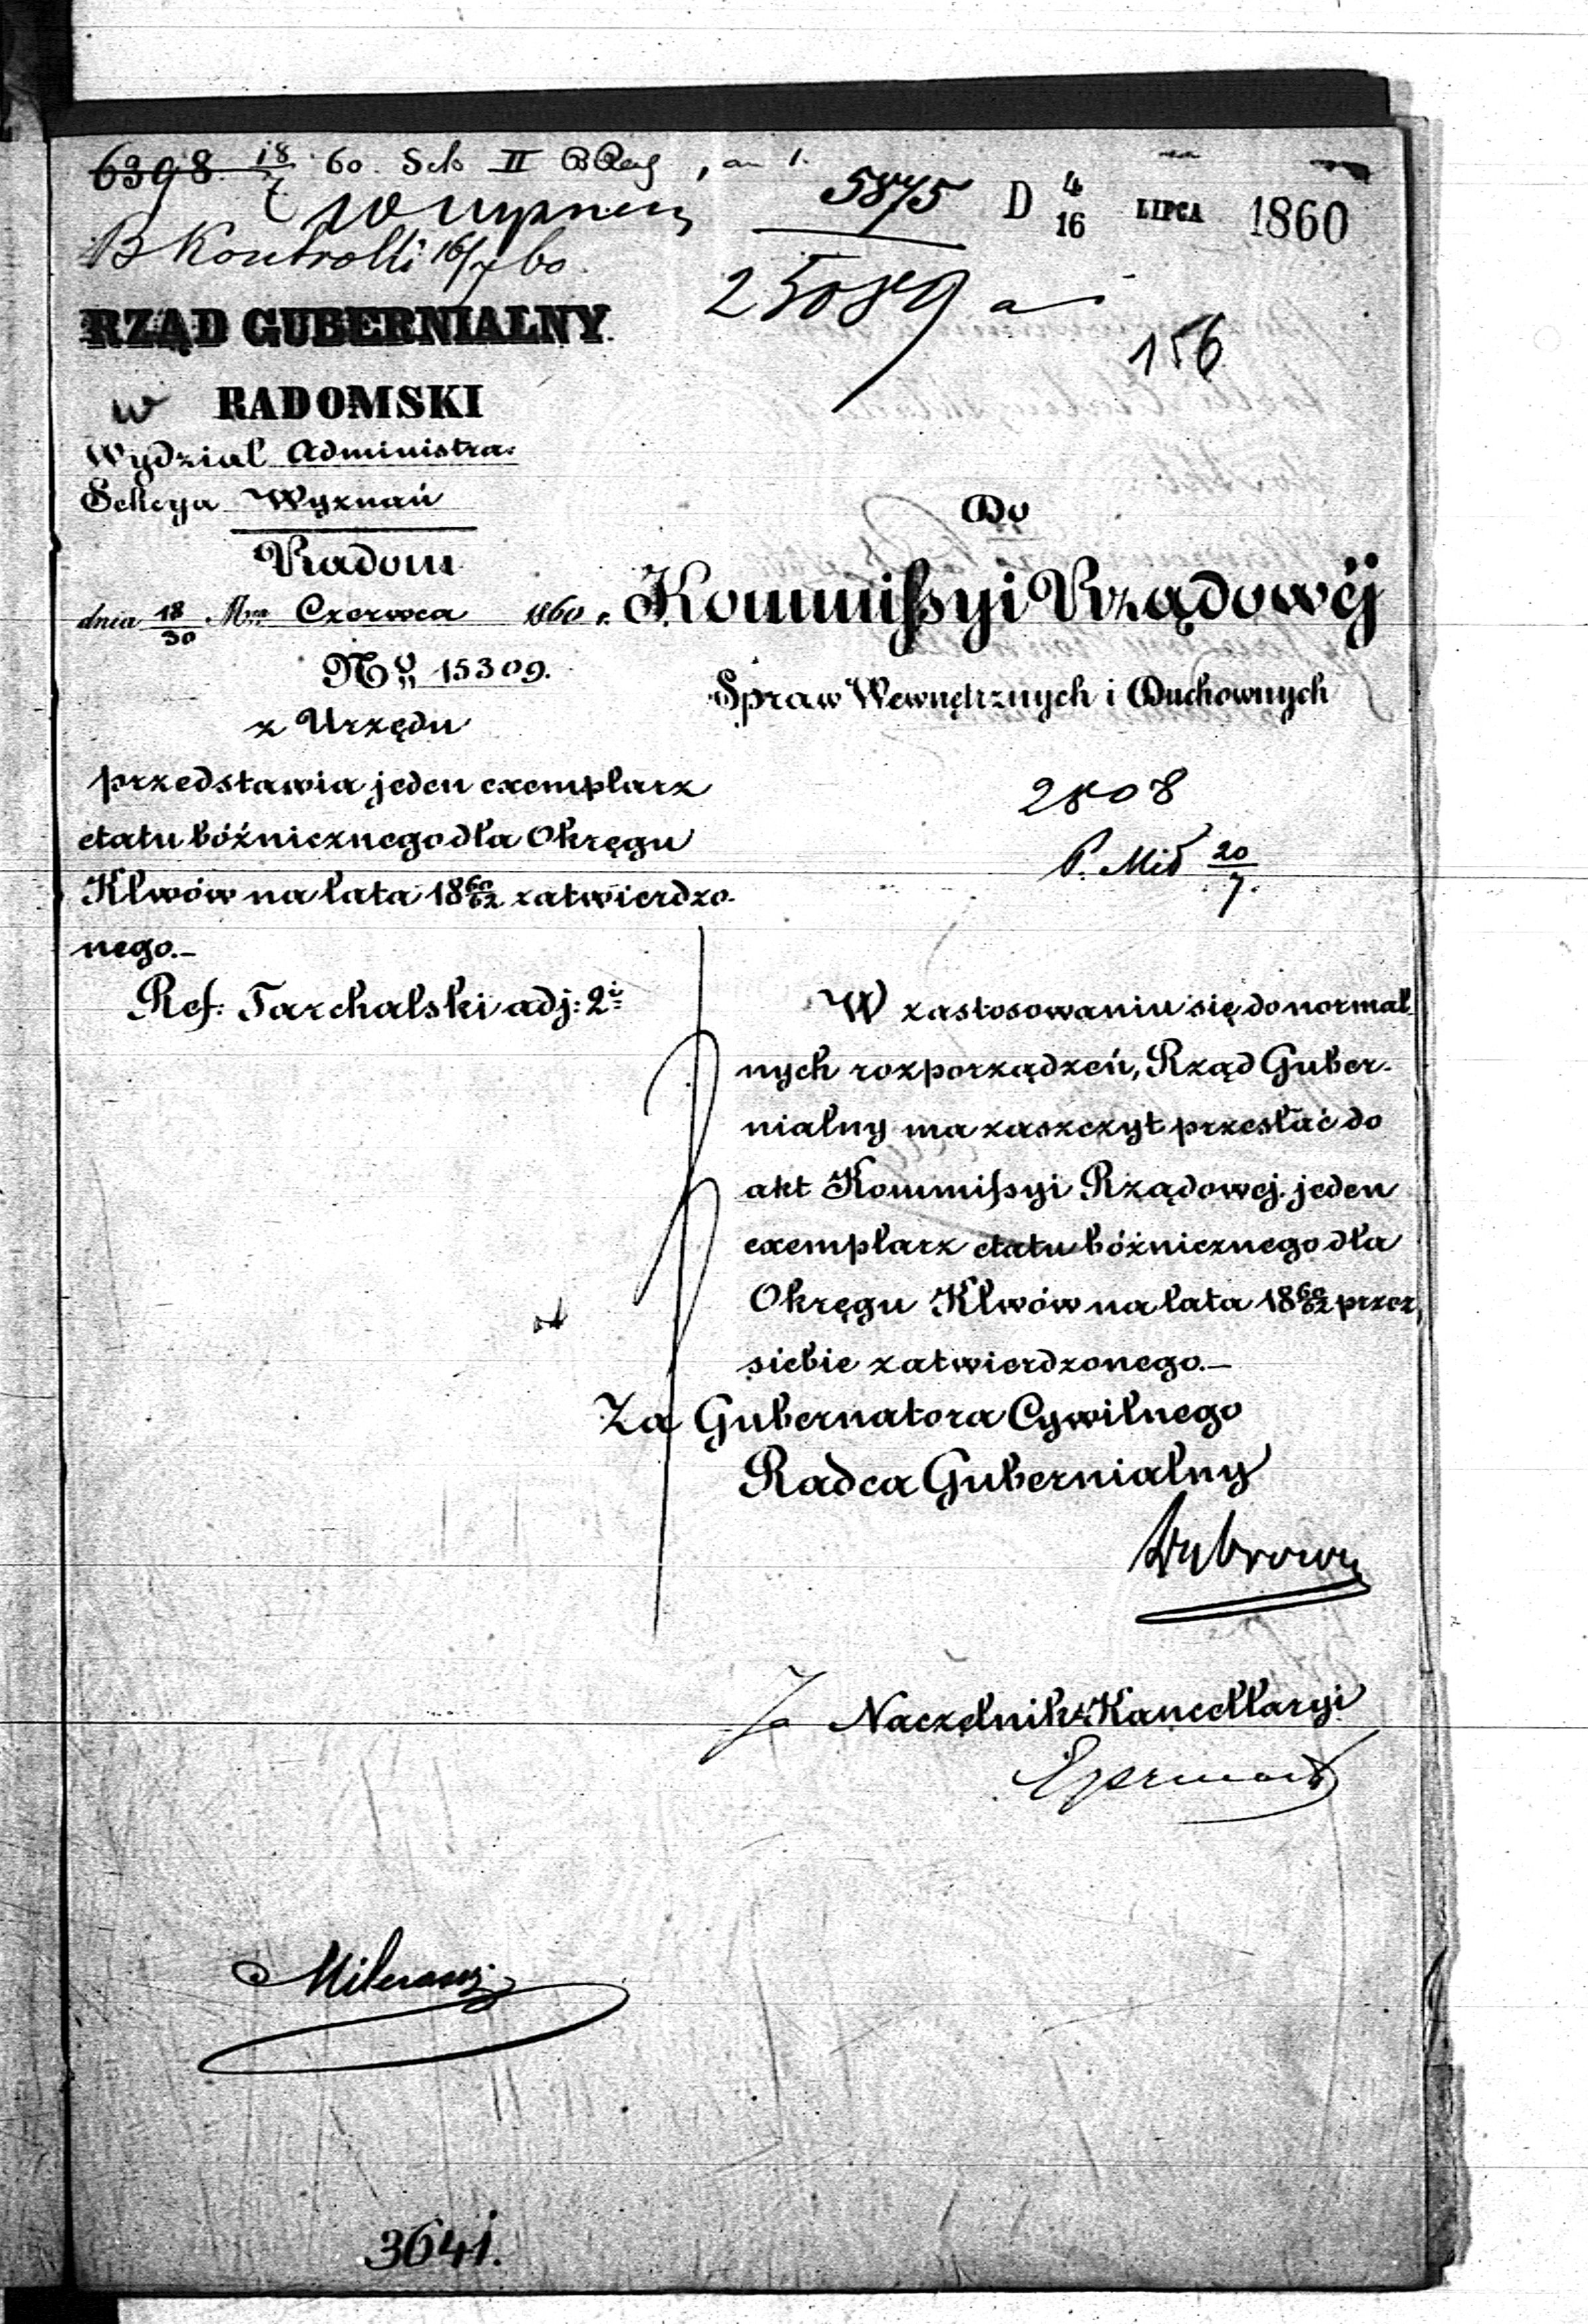 6398 18/7 60. Sek II
5875 D 4/16 LIPCA 1860
B Kontrolli 16/7 60.
25089
156
RZĄD GUBERNIALNY
w RADOMSKI
Wydział Administra:
Sekcya Wyznań
Radom
dnia 18/30 Mca Czerwca 1860 r.
No 15309.
z Urzędu
przedstawia jeden exemplarz
etatu bóźnicznego dla Okręgu
Klwów na lata 1860/62 zatwierdzo-
nego.-
Ref: Tarchalski adj: 2i
Do
Kommissyi Rządowéj
Spraw Wewnętrznych i Duchownych
2808
P. Mił 20/7.
W zastosowaniu się do normal
nych rozporządzeń, Rząd Guber-
nialny ma zaszczyt przesłać do
akt Kommissyi Rządowej jeden
exemplarz etatu bóżnicznego dla
Okręgu Klwów na lata 1860/62 przez
siebie zatwierdzonego.-
Za Gubernatora Cywilnego
Radca Gubernialny
Naczelnik Kancellaryi
3641.